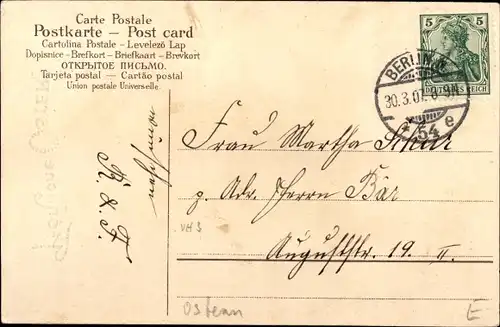 Carte Postale
Postkarte — Post card
Cartolina Postale - Levelező Lap
Dopisnice - Brefkort - Briefkaart - Brevkort
ОТКРЫТОЕ ПИСЬМО.
Tarjeta postal — Cartão postal
Union postale Universelle.
5 5
DEUTSCHES REICH
BERLIN
30.3.07.
54 e
Frau Martha Schur
p. Adr. Herrn Bär
Auguststr. 19. II.
R. & F.
VH 3
Ostern
E